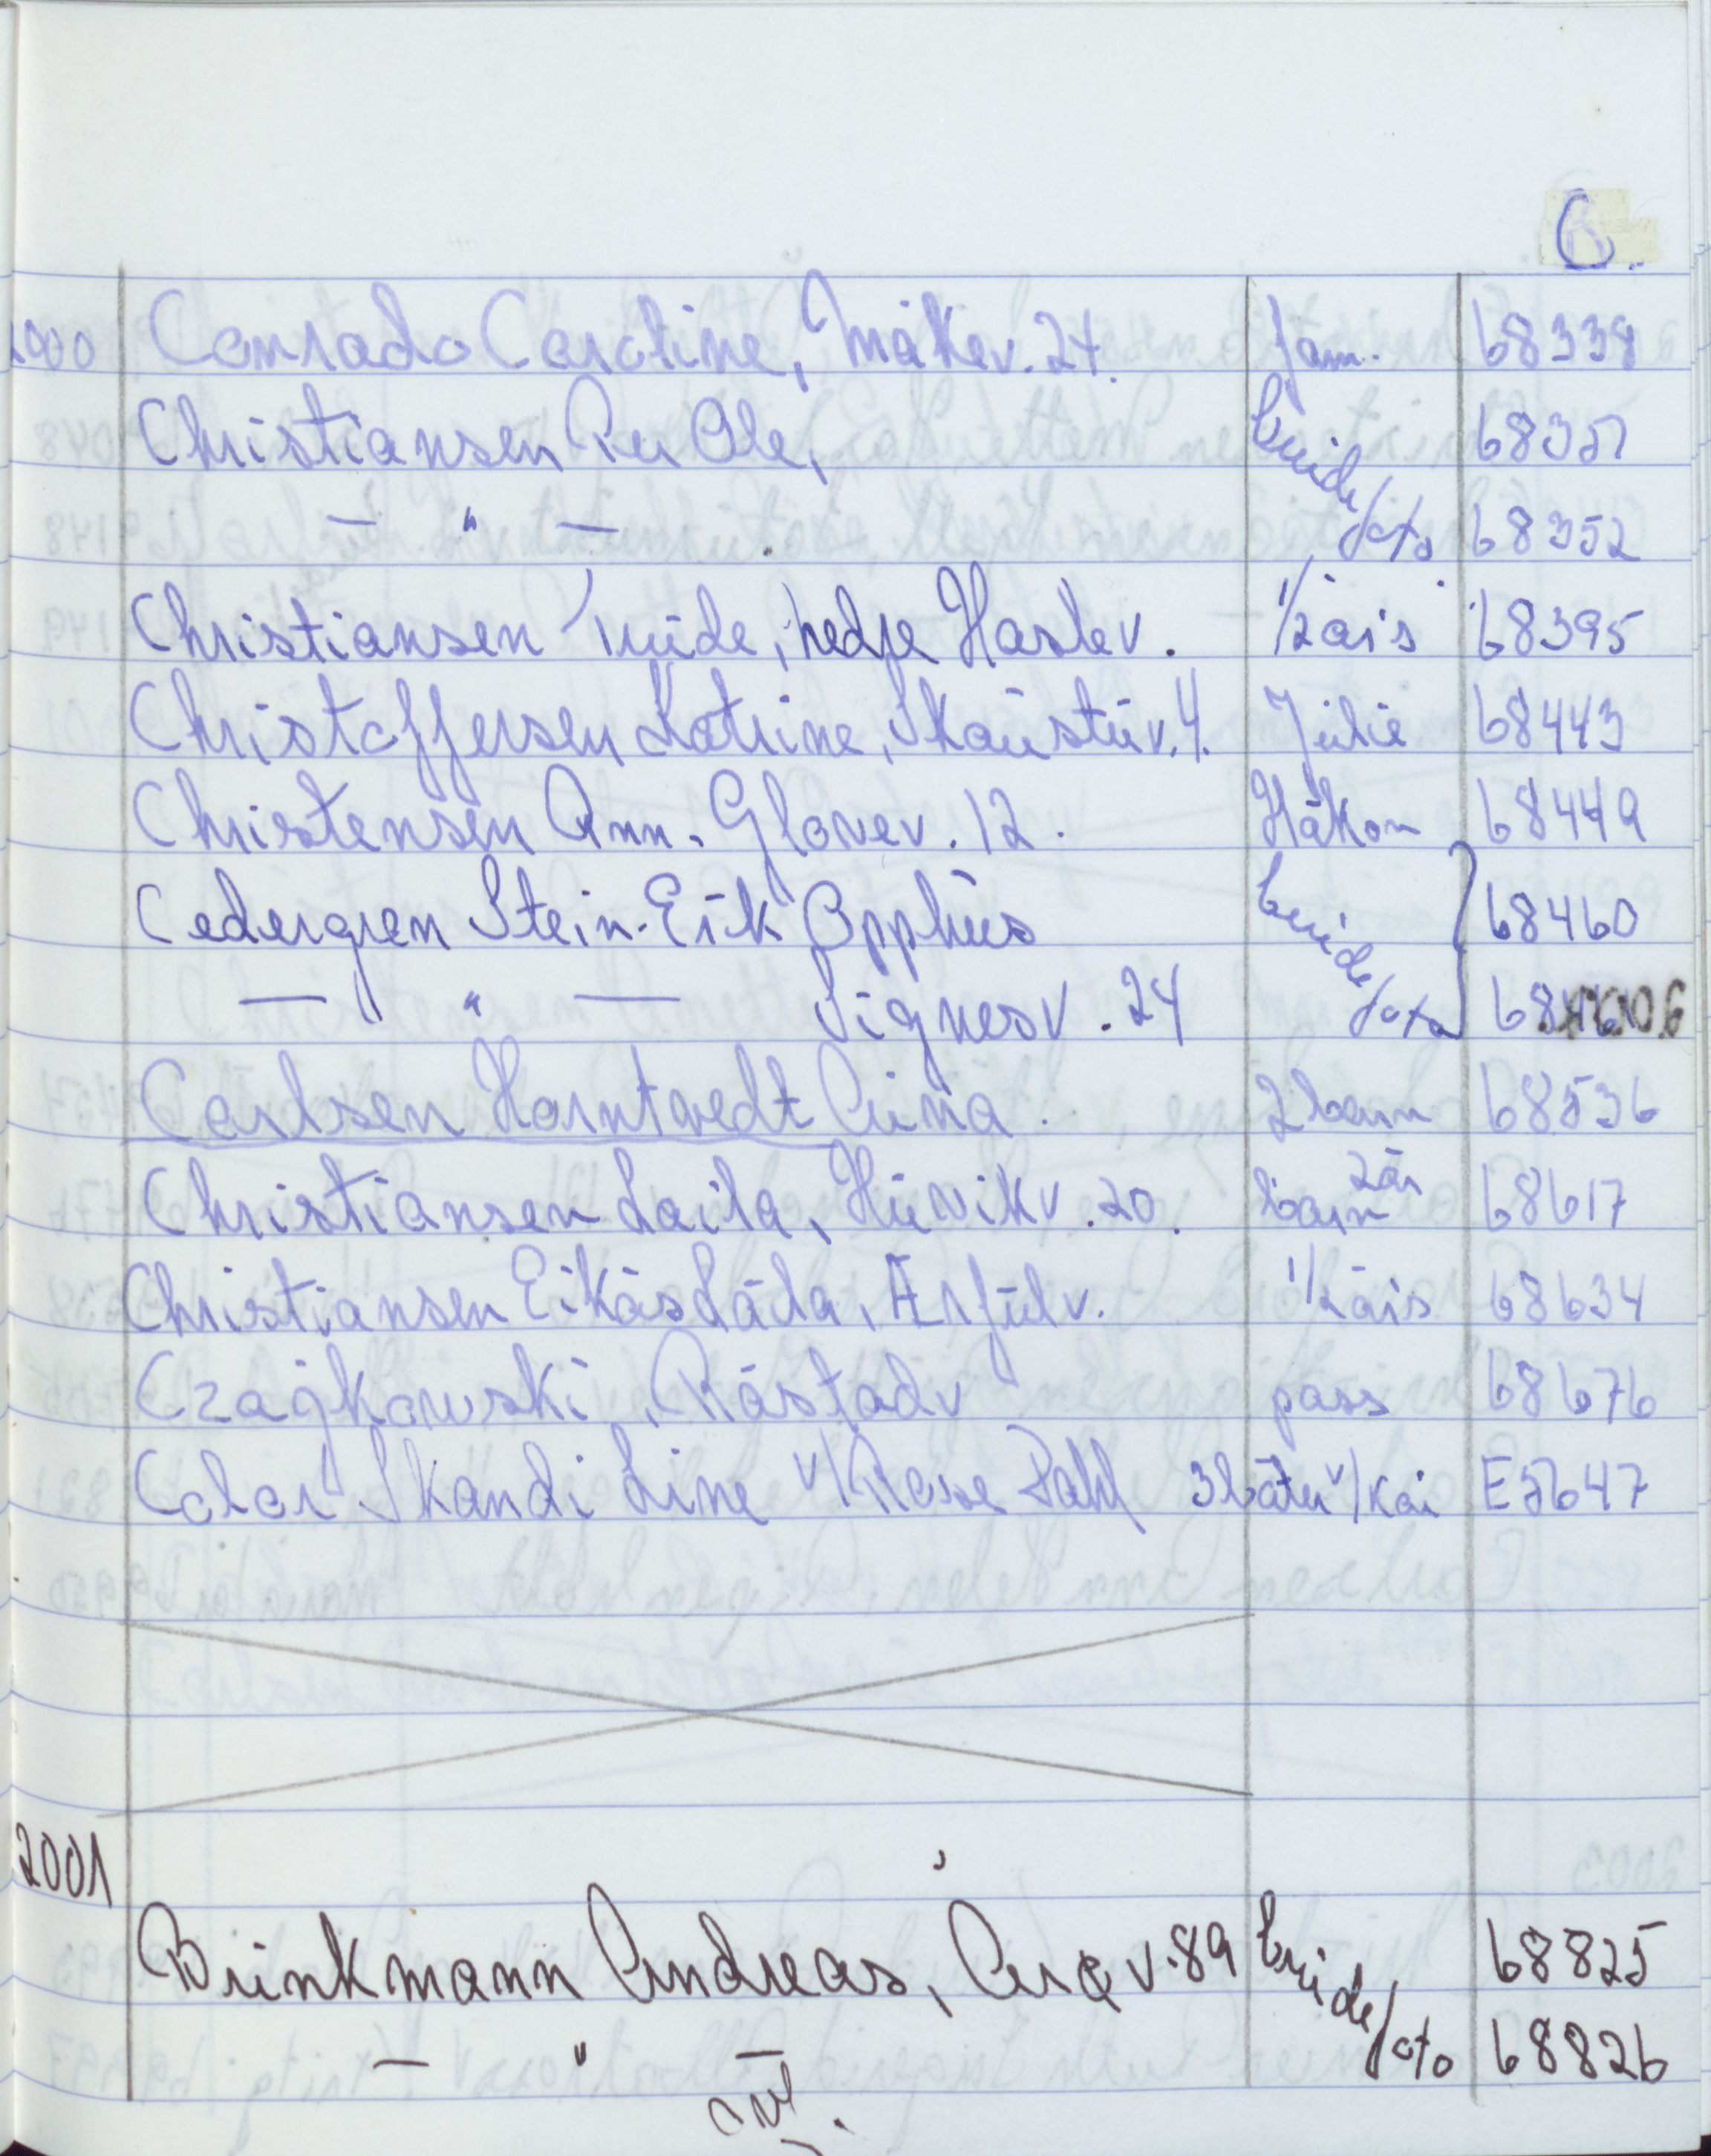 C.
2000 Conrado Caroline, Måkev. 24. fam. 68338
Christiansen Per Ole, brude 68351
— " — foto 68352
Christiansen Turide, nedre Haslev. 1/2 års 68395
Christoffersen Katrine, Skaustuv. 4. Julie 68443
Christensen Ann. Glonev. 12. Håkon 68449
Cedergren Stein-Eik Opphus brude 68460
— " — Signesv. 24 foto
Carlsen Horntvedt Lina. 2 barn 68536
Christiansen Laila, Huvikv. 20. barn 2 år 68617
Christiansen Eikås Låda, Ærfulv. 1/2 års 68634
Czajkowski, Råstadv pass 68676
Color Skandi Line v/Roese Dahl 3 båter v/kai E5647
2001
Brinkmann Andreas, Aroev. 89 brude 68825
— " — foto 68826